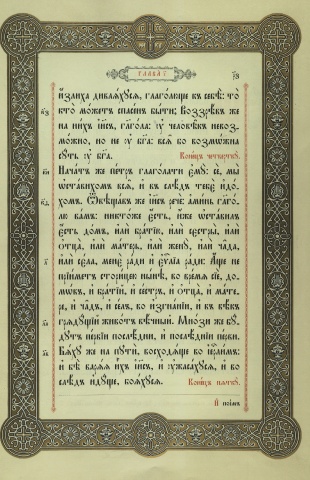 ГЛАВА І
и҆зли́ха дивлѧ́хꙋсѧ, глаго́люще къ себѣ̀: то̀
кто̀ мо́жетъ спасе́нъ бы́ти; Воззрѣ́въ же
на ни́хъ і҆и҃съ, гл҃го́ла: ᲂу҆ человѣ̑къ невоз-
мо́жно, но не ᲂу҆ бг҃а: всѧ̑ бо возмѡ́жна
сꙋ́ть ᲂу҆ бг҃а. Коне́цъ четверткꙋ̀.
Нача́тъ же пе́тръ глаго́лати є҆мꙋ̀: сѐ, мы̀
ѡ҆ста́вихомъ всѧ̑, и҆ в̾слѣ́дъ тебє̀ и҆до́-
хомъ. Ѿвѣща́въ же і҆и҃съ речѐ: а҆ми́нь гл҃го́-
лю ва́мъ: никто́же є҆́сть, и҆́же ѡ҆ста́вилъ
є҆́сть до́мъ, и҆лѝ бра́тїю, и҆лѝ сєстры̀, и҆лѝ
ѻ҆тца̀, и҆лѝ ма́терь, и҆лѝ женꙋ̀, и҆лѝ ча̑да,
и҆лѝ се́ла, менє̀ ра́ди и҆ є҆ѵⷢ҇лїа ра́ди: А҆́ще не
прїи́метъ стори́цею ны́нѣ, во вре́мѧ сїѐ, до-
мѡ́въ, и҆ бра́тїи, и҆ сєстръ, и҆ ѻ҆тца̀, и҆ ма́те-
ре, и҆ ча̑дъ, и҆ се́лъ, во и҆згна́нїи, и҆ въ вѣ́къ
грѧдꙋ́щїй живо́тъ вѣ́чный. Мно́зи же бꙋ́-
дꙋтъ пе́рвїи послѣ́днїи, и҆ послѣ́днїи пе́рви.
Бѧ́хꙋ же на пꙋтѝ, восходѧ́ще во і҆ерⷭ҇ли́мъ:
и҆ бѣ̀ варѧ́ѧ и҆̀хъ і҆и҃съ, и҆ ᲂу҆жаса́хꙋсѧ, и҆ во
слѣ́дъ и҆дꙋ́ще, боѧ́хꙋсѧ. Коне́цъ пѧткꙋ̀.
И҆ пои́мъ